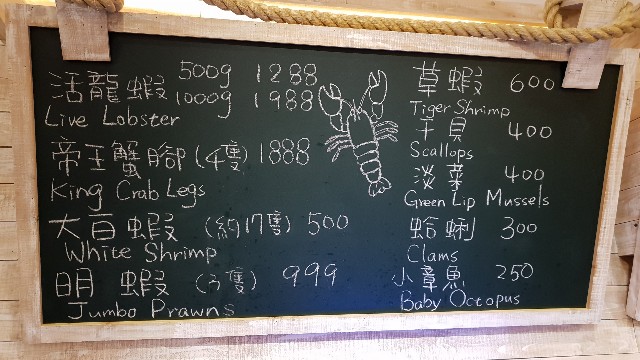 活龍蝦 500g 1288
1000g 1988
Live Lobster
帝王蟹腳 (4隻) 1888
King Crab Legs
大白蝦 (約17隻) 500
White Shrimp
明蝦 (3隻) 999
Jumbo Prawns
草蝦 600
Tiger Shrimp
干貝 400
Scallops
淡菜 400
Green Lip Mussels
蛤蜊 300
Clams
小章魚 250
Baby Octopus